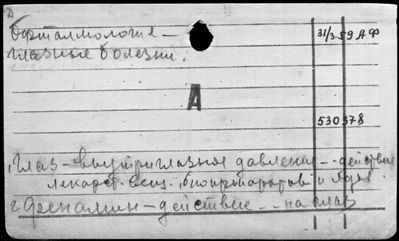 Офталмология –
глазные болезни.
31/3-59 АФ
А
530378
Глаз – внутриглазное давление – действие
лекарст. вещ., биопрепаратов и ядов
Адреналин – действие – на глаз